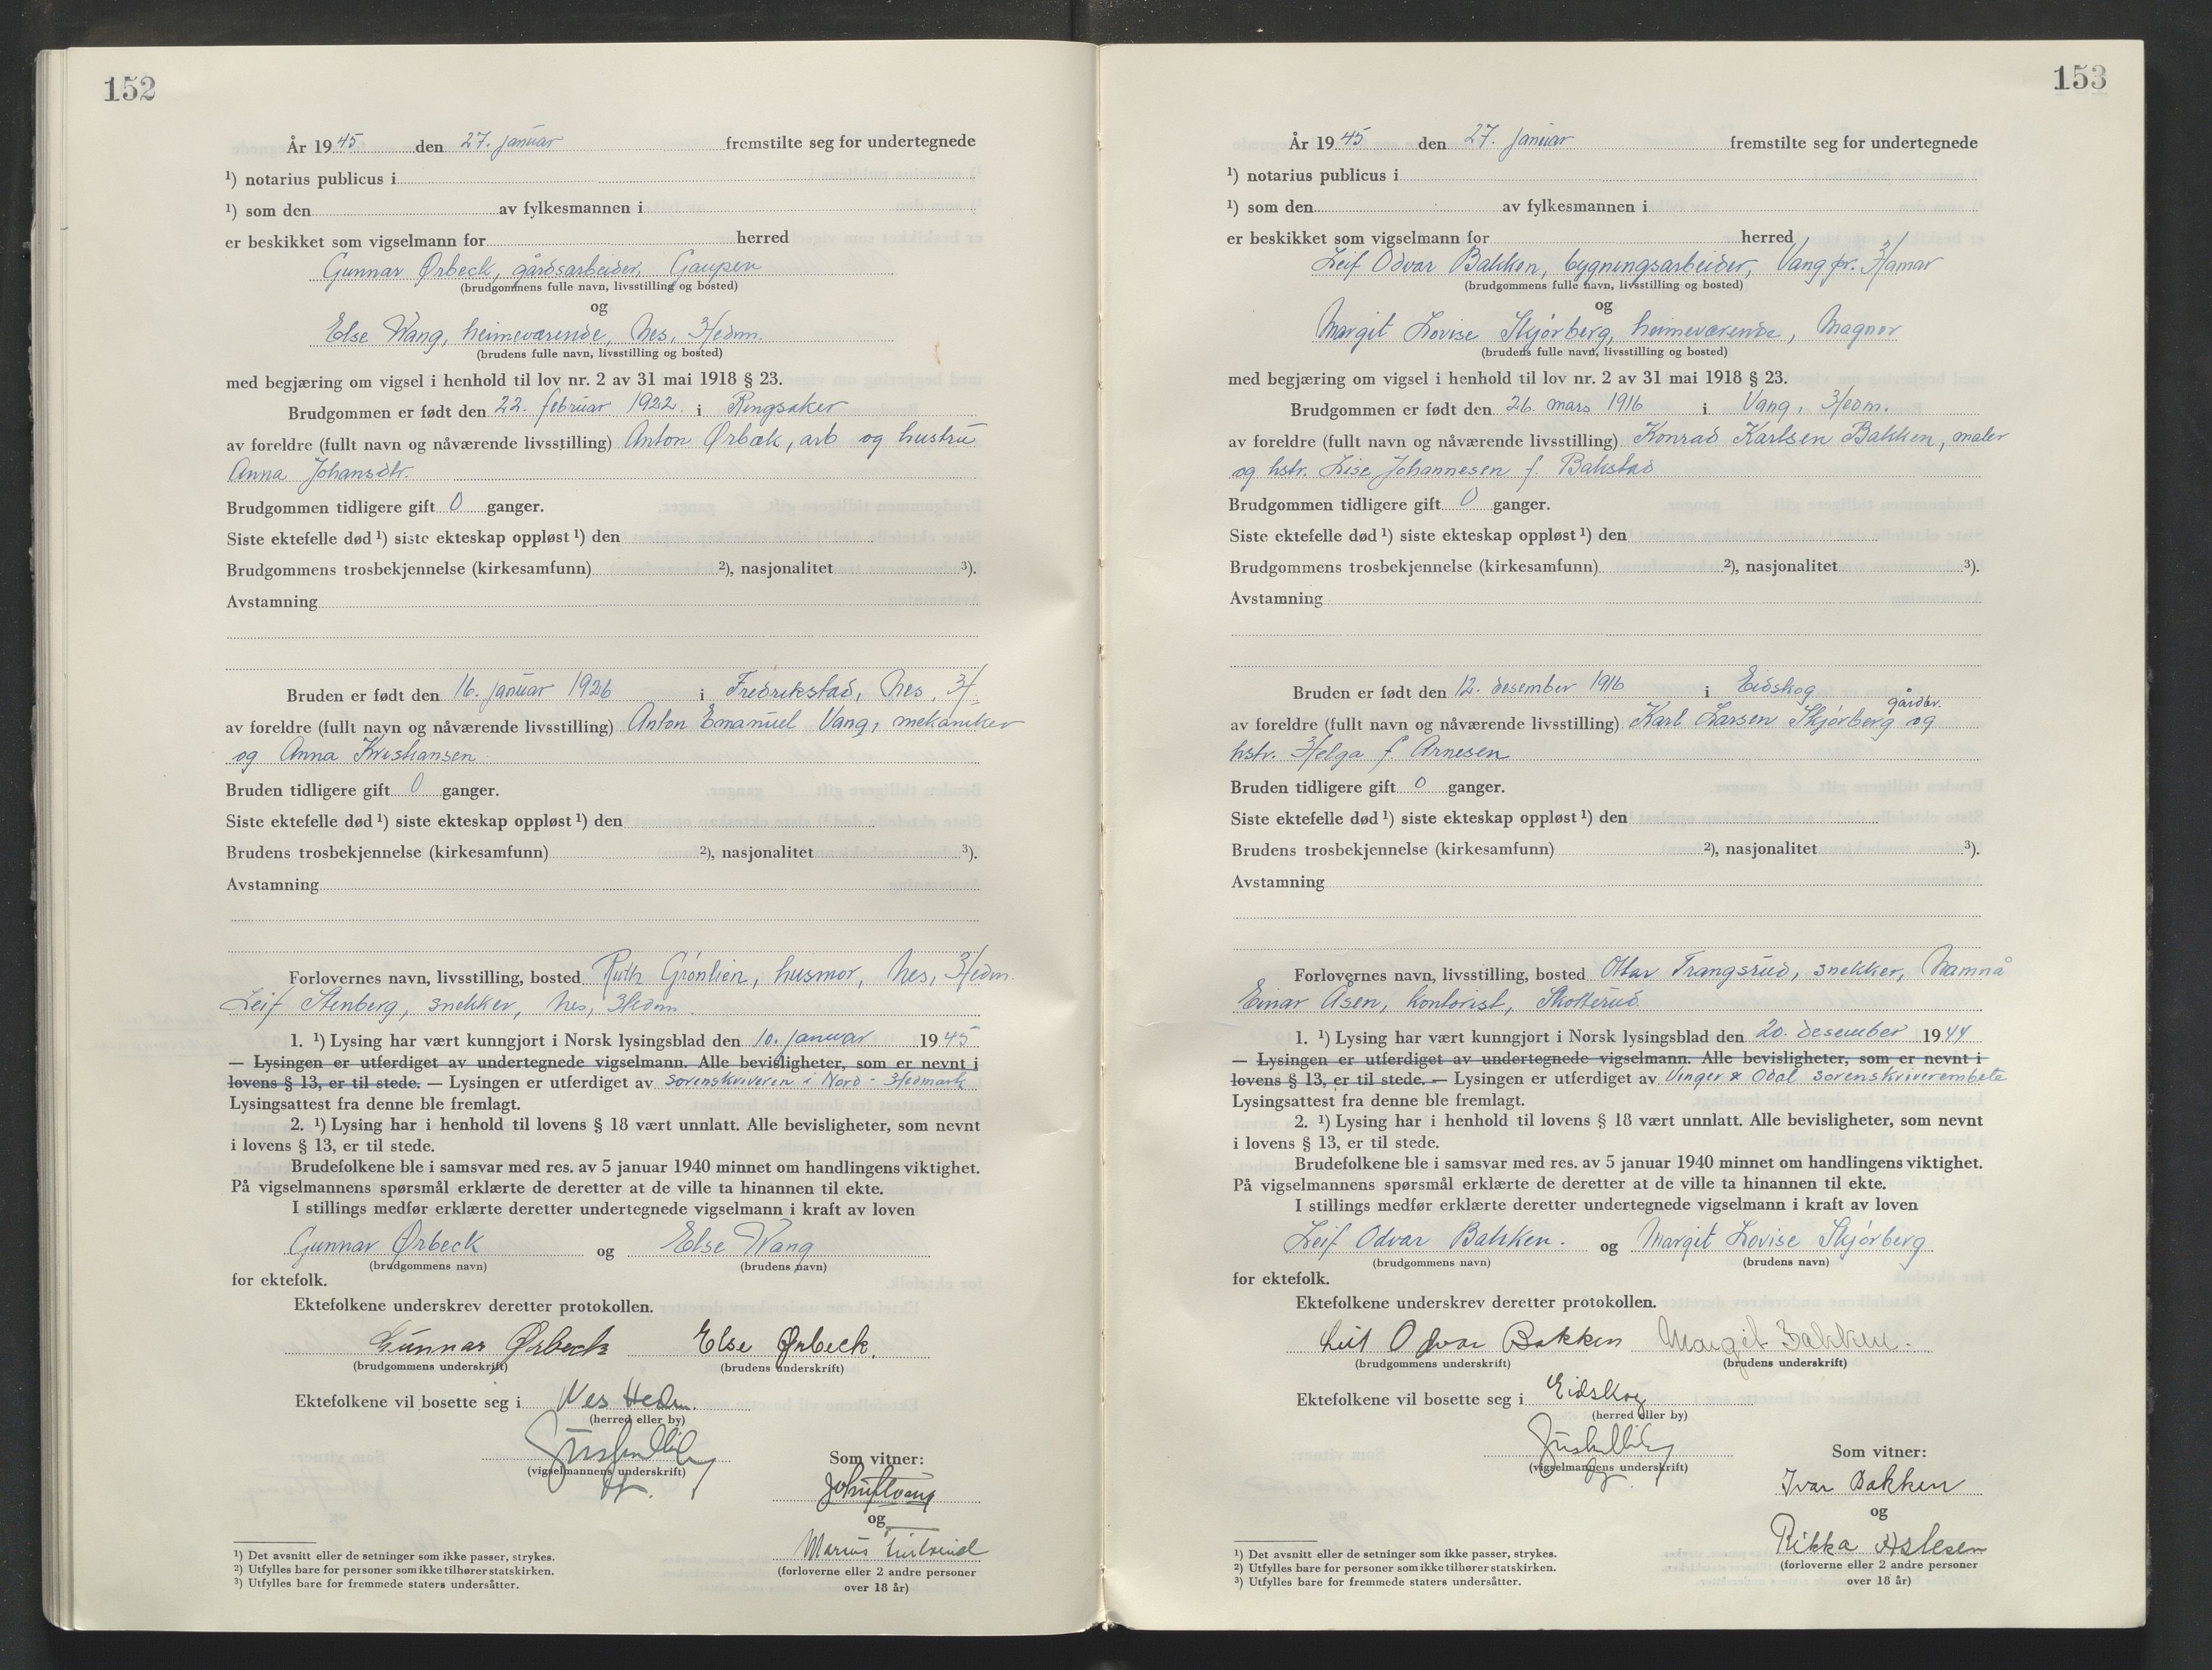 152
År 1945 den 27. januar fremstilte seg for undertegnede
¹) notarius publicus i
¹) som den av fylkesmannen i
er beskikket som vigselmann for herred
Gunnar Ørbeck, gårdsarbeider, Gaupen
(brudgommens fulle navn, livsstilling og bosted)
og
Else Wang, heimeværende, Nes, Hedm.
(brudens fulle navn, livsstilling og bosted)
med begjæring om vigsel i henhold til lov nr. 2 av 31 mai 1918 § 23.
Brudgommen er født den 22. februar 1922. i Ringsaker
av foreldre (fullt navn og nåværende livsstilling) Anton Ørbæk, arb og hustru
Anna Johansdtr.
Brudgommen tidligere gift 0 ganger.
Siste ektefelle død ¹) siste ekteskap oppløst ¹) den
Brudgommens trosbekjennelse (kirkesamfunn) ²), nasjonalitet ³).
Avstamning
Bruden er født den 16. januar 1926 i Fredrikstad, Nes, H.
av foreldre (fullt navn og nåværende livsstilling) Anton Emanuel Vang, mekaniker
og Anna Kristiansen
Bruden tidligere gift 0 ganger.
Siste ektefelle død ¹) siste ekteskap oppløst ¹) den
Brudens trosbekjennelse (kirkesamfunn) ²), nasjonalitet ³).
Avstamning
Forlovernes navn, livsstilling, bosted Ruth Grönlien, husmor, Nes, Hedm.
Leif Stenberg, snekker, Nes, Hedm.
1. ¹) Lysing har vært kunngjort i Norsk lysingsblad den 10. januar 1945
— Lysingen er utferdiget av undertegnede vigselmann. Alle bevisligheter, som er nevnt i
lovens § 13, er til stede. — Lysingen er utferdiget av sorenskriveren i Nord-Hedmark
Lysingsattest fra denne ble fremlagt.
2. ¹) Lysing har i henhold til lovens § 18 vært unnlatt. Alle bevisligheter, som nevnt
i lovens § 13, er til stede.
Brudefolkene ble i samsvar med res. av 5 januar 1940 minnet om handlingens viktighet.
På vigselmannens spørsmål erklærte de deretter at de ville ta hinannen til ekte.
I stillings medfør erklærte deretter undertegnede vigselmann i kraft av loven
Gunnar Ørbeck og Else Wang
(brudgommens navn) (brudens navn)
for ektefolk.
Ektefolkene underskrev deretter protokollen.
Gunnar Ørbeck Else Ørbeck.
(brudgommens underskrift) (brudens underskrift)
Ektefolkene vil bosette seg i Nes Hedm.
(herred eller by)
(vigselmannens underskrift)
Som vitner:
og
Marius
(forloverne eller 2 andre personer
over 18 år)
¹) Det avsnitt eller de setninger som ikke passer, strykes.
²) Utfylles bare for personer som ikke tilhører statskirken.
³) Utfylles bare for fremmede staters undersåtter.
153
År 1945 den 27. januar fremstilte seg for undertegnede
¹) notarius publicus i
¹) som den av fylkesmannen i
er beskikket som vigselmann for herred
Leif Odvar Bakken, bygningsarbeider, Vang pr. Hamar
(brudgommens fulle navn, livsstilling og bosted)
og
Margit Lovise Skjörberg, heimeværende, Magnor
(brudens fulle navn, livsstilling og bosted)
med begjæring om vigsel i henhold til lov nr. 2 av 31 mai 1918 § 23.
Brudgommen er født den 26. mars 1916 i Vang, Hedm.
av foreldre (fullt navn og nåværende livsstilling) Konrad Karlsen Bakken, maler
og hstr. Lise Johannesen f. Bakstad
Brudgommen tidligere gift 0 ganger.
Siste ektefelle død ¹) siste ekteskap oppløst ¹) den
Brudgommens trosbekjennelse (kirkesamfunn) ²), nasjonalitet ³).
Avstamning
Bruden er født den 12. desember 1916 i Eidskog
gårdbr.
av foreldre (fullt navn og nåværende livsstilling) Karl Larsen Skjörberg og
hstr. Helga f. Arnesen
Bruden tidligere gift 0 ganger.
Siste ektefelle død ¹) siste ekteskap oppløst ¹) den
Brudens trosbekjennelse (kirkesamfunn) ²), nasjonalitet ³).
Avstamning
Forlovernes navn, livsstilling, bosted Ottar Trangsrud, snekker, Namnå
Einar Åsen, kontorist, Skotterud
1. ¹) Lysing har vært kunngjort i Norsk lysingsblad den 20. desember 1944
— Lysingen er utferdiget av undertegnede vigselmann. Alle bevisligheter, som er nevnt i
lovens § 13, er til stede. — Lysingen er utferdiget av Vinger & Odal sorenskriverembete
Lysingsattest fra denne ble fremlagt.
2. ¹) Lysing har i henhold til lovens § 18 vært unnlatt. Alle bevisligheter, som nevnt
i lovens § 13, er til stede.
Brudefolkene ble i samsvar med res. av 5 januar 1940 minnet om handlingens viktighet.
På vigselmannens spørsmål erklærte de deretter at de ville ta hinannen til ekte.
I stillings medfør erklærte deretter undertegnede vigselmann i kraft av loven
Leif Odvar Bakken. og Margit Lovise Skjörberg
(brudgommens navn) (brudens navn)
for ektefolk.
Ektefolkene underskrev deretter protokollen.
Leif Odvar Bakken Margit Bakken.
(brudgommens underskrift) (brudens underskrift)
Ektefolkene vil bosette seg i Eidskog
(herred eller by)
(vigselmannens underskrift)
Som vitner:
Ivar Bakken
og
Rikka Aslesen
(forloverne eller 2 andre personer
over 18 år)
¹) Det avsnitt eller de setninger som ikke passer, strykes.
²) Utfylles bare for personer som ikke tilhører statskirken.
³) Utfylles bare for fremmede staters undersåtter.